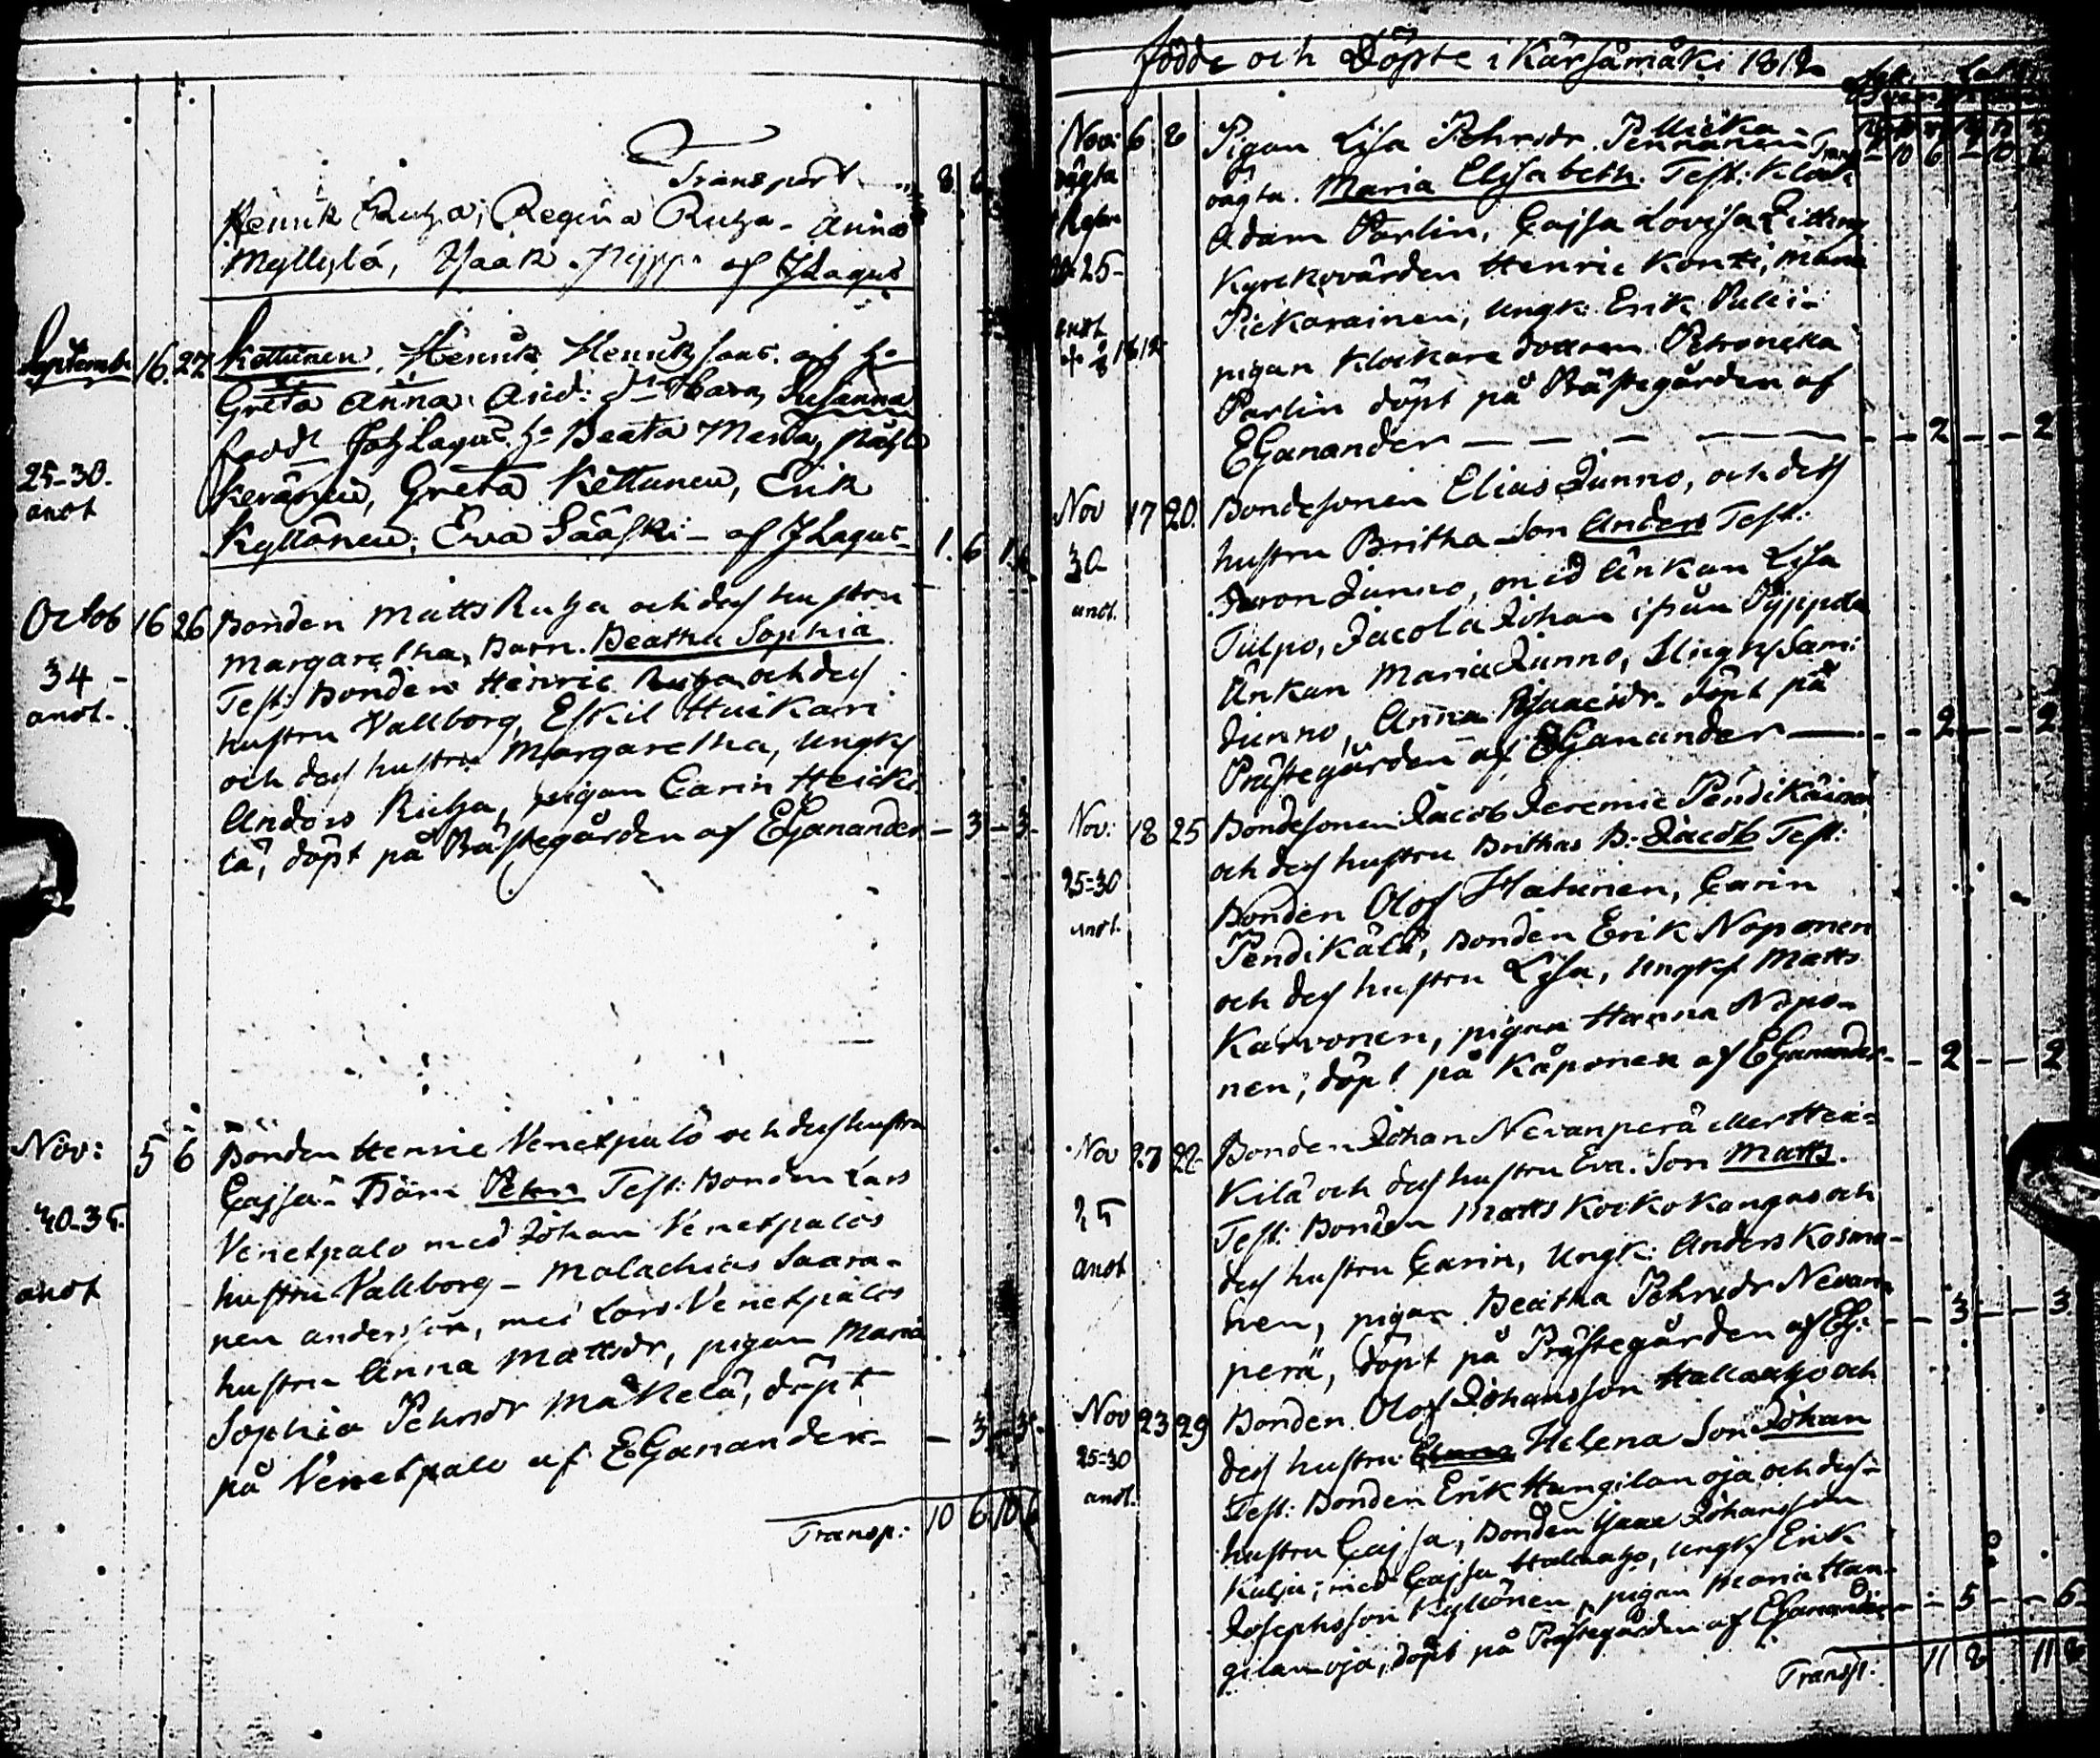 Transport 8 6
Henrik Ruha, Regina Ruha - Anna
Myllylä, Isaak Pijpp. af JLagus
Septemb. 16. 27 Kettunen, Henrik Henrikssons och h:
Greta Anna And: dr Barn, Susanna
född h: Beata
Keränen, Greta Kettunen, Erik
Kyllönen, Eva Sääski - af JLagus - 1. 6 1. 6
25-30.
anot
Octob 16 26 Bonden Matts Ruha och dess hustru
Margaretha, Barn. Beatha Sophia.
Test: Bonden Henric Ruha och dess
hustru Vallborg, Eskil Huikari
och dess hustru Margaretha, Ungk
Anders Ruha, pigan Carin Heicki
lä, döpt på Prästegården af EGanander - 3 - 3 -
34 -
anot -
Nov: 5 6 Bonden Henric Venetpalo och dess hustru
Cajsa - Barn Petter Test: Bonden Lars
Venetpalo med Johan Venetpalos
hustru Vallborg - Malachias Saara-
nen andersson, med Lars Venetpalos
hustru Anna Mattsdr, pigan Maria
Sophia Pehrsdr Mäkelä, döpt
på Venetpalo af EGanander - - 3 - 3 -
30-35.
anot
Transp: 10 6 10 6
Födde och Döpte i Kärsämäki 1812
Nov: 6 8 Pigan Lisa Pehrsdr. Pennanen Transp - 10 6 - 10 6
oägta. Maria Elisabeth. Test: Klock
Adam Parlin, Cajsa Lovisa
Kyrckovärden Henric Konti, Maria
Pickarainen, Ungk: Erik
pigan Klockare dottren Petronella
Parlin döpt på Prästegården af
EGanander - - - - - 2 - - 2
oägta
25 -
anot
Nov 17 20. Bondesonen Elias Junno, och dess
hustru Britha Son Anders Test:
Aron Junno, med Änkan Lisa
Tulpo, Jacola Johan ifrån Pijppola
Änkan Maria Junno, Sam:
Junno, Anna Isaacsdr. döpt på
Prästegården af EGanander - - - 2 - - 2
30
anot.
Nov: 18 25 Bondesonen Jacob Jeremie Pendikäinen
och dess hustru Brithas B: Jacob Test:
Bonden Olof Hatunen, Carin
Pendikälä, Bonden Erik Noponen
och dess hustru Lisa, Ungk Matts
Karvonen, pigan Hanna Nopo-
nen, döpt på Kåponen af EGanander - - 2 - - 2
25-30
anot.
Nov 27 22 Bonden Johan Nevanperä eller Hei-
kilä och dess hustru Eva. Son Matts.
Test: Bonden Matts Kockokangas och
dess hustru Carin, Ungk: Anders Kosmo-
nen, pigan Beatha Pehrsdr Nevan-
perä, döpt på Prästegården af EG: - - 3 - - 3
25
anot
Nov 23 29 Bonden Olof Johansson Hallaaho och
dess hustru Helena Son Johan
Test: Bonden Erik Hangilanoja och dess
hustru Cajsa, Bonden Isaac Johansson
Kulju, med Cajsa Hallaaho, Ungk Erik
Josephsson Kyllönen, pigan Maria Han-
gilanoja, döpt på Prästegården af EGanander - - 5 - - 5
25-30
anot.
Transp: 11 8 11 8